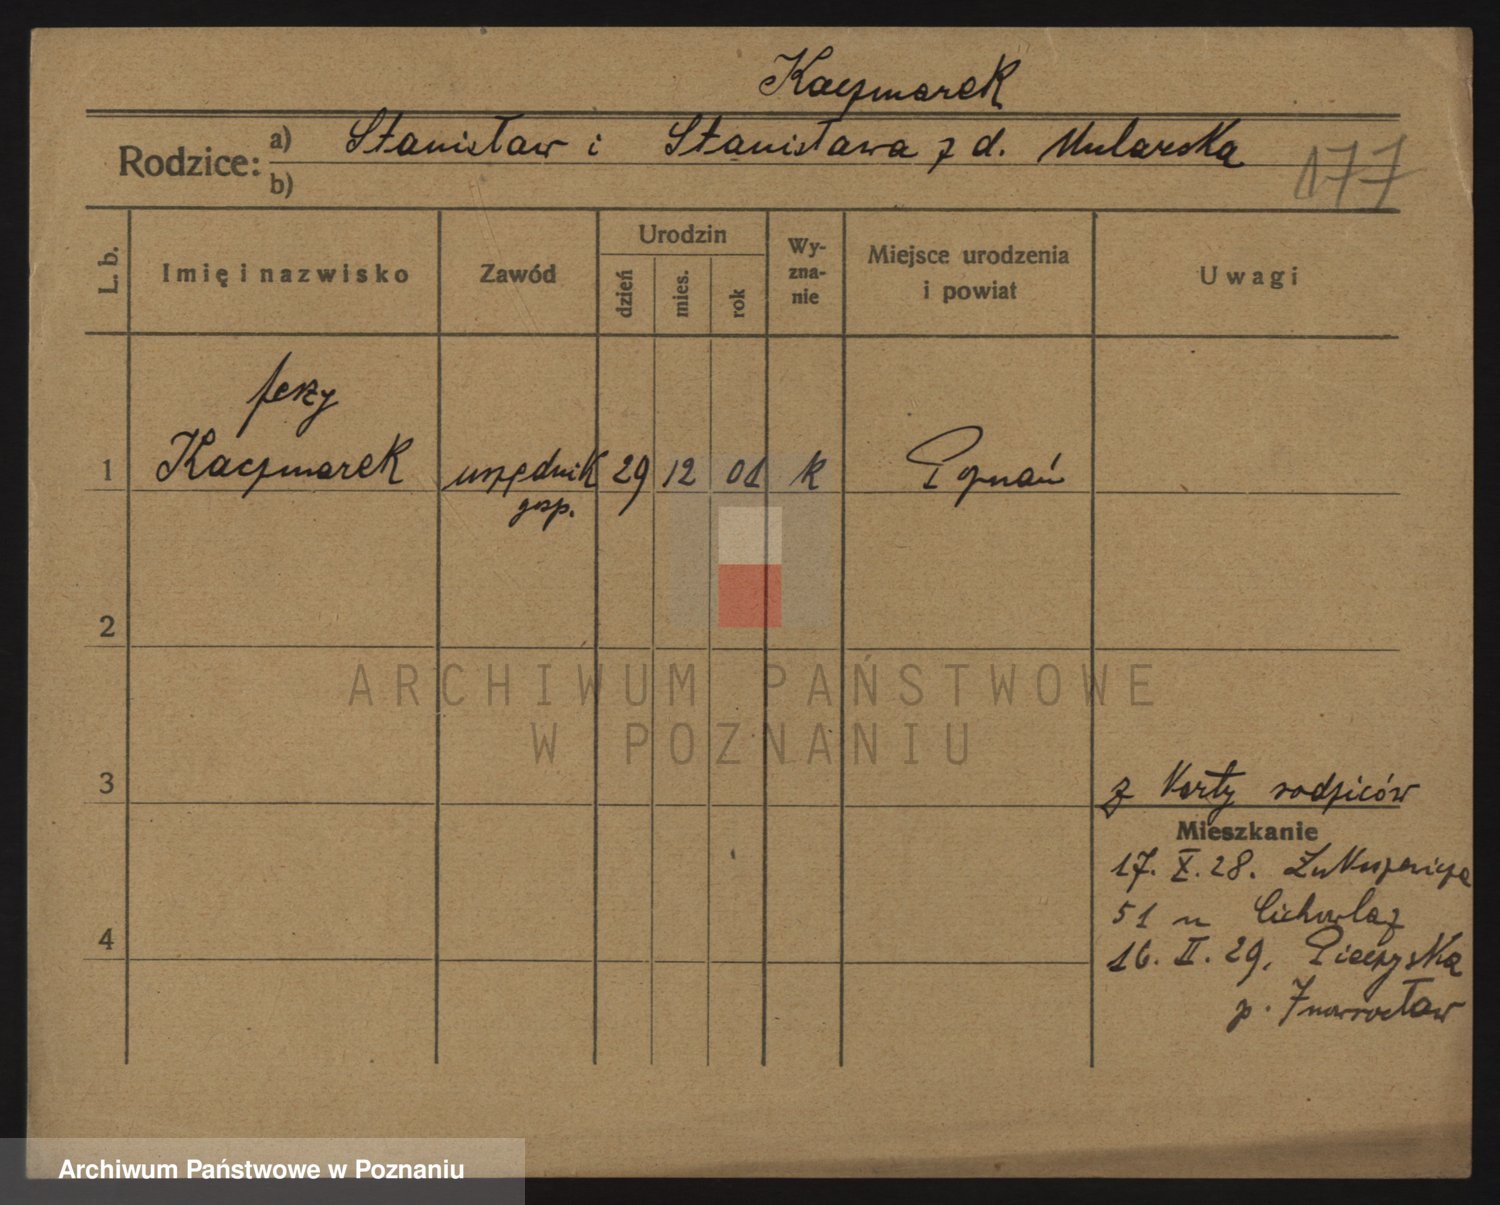 Kaczmarek
Rodzice: a) Stanisław i Stanisława z d. Mularska
b)
177
L. b.
Imię i nazwisko
Zawód
Urodzin
dzień
mies.
rok
Wy-
zna-
nie
Miejsce urodzenia
i powiat
Uwagi
Jerzy
1 Kaczmarek urzędnik 29 12 01 k Poznań
gosp.
2
ARCHIWUM PAŃSTWOWE
W POZNANIU
3
z Karty rodziców
Mieszkanie
17. X. 28.
51 u Cichowlaz
4
16. II. 29. Pieczyska
p. Inowrocław
Archiwum Państwowe w Poznaniu